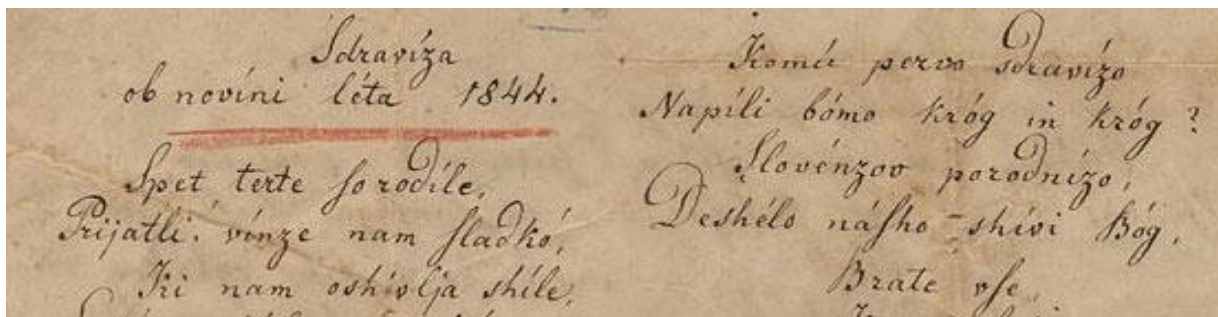 Sdravíza
ob novíni léta 1844.
Spet terte so rodíle,
Prijatli! vínze nam sladkó,
Ki nam oshívlja shíle,
Komú pervo sdravízo
Napíli bómo króg in króg?
Slovénzov porodnízo,
Deshélo násho shívi Bóg,
Brate vse,